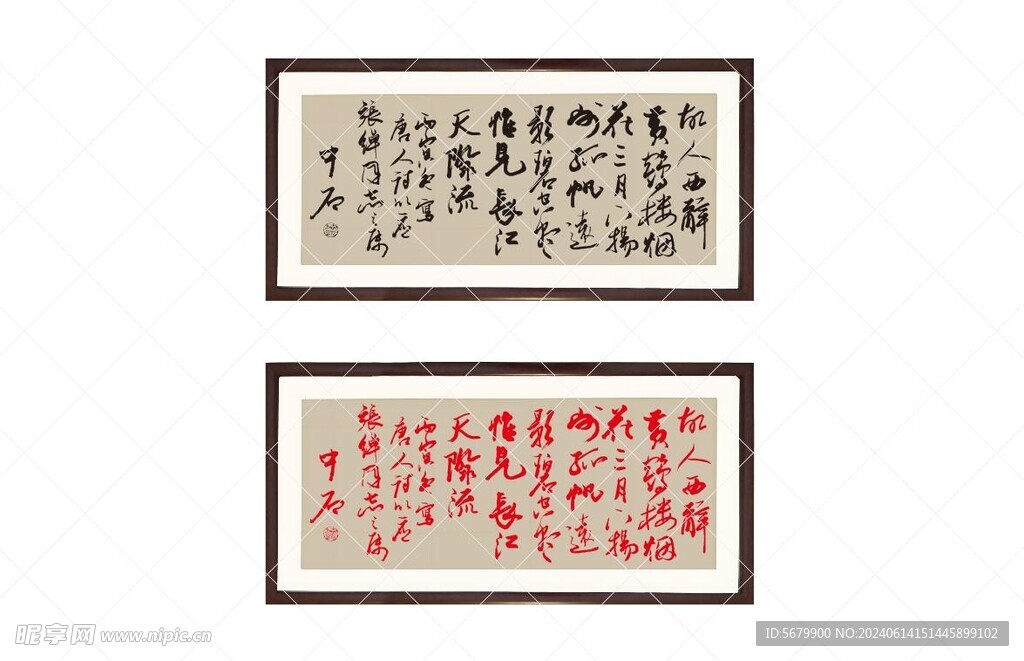 故人西辭
黄鶴楼烟
花三月下揚
州孤帆遠
影碧空尽
惟見長江
天際流
丙寅寫
唐人诗以应
張同志之属
中石
故人西辭
黄鶴楼烟
花三月下揚
州孤帆遠
影碧空尽
惟見長江
天際流
丙寅寫
唐人诗以应
張同志之属
中石
昵享网 www.nipic.cn
ID:5679900 NO:20240614151445899102